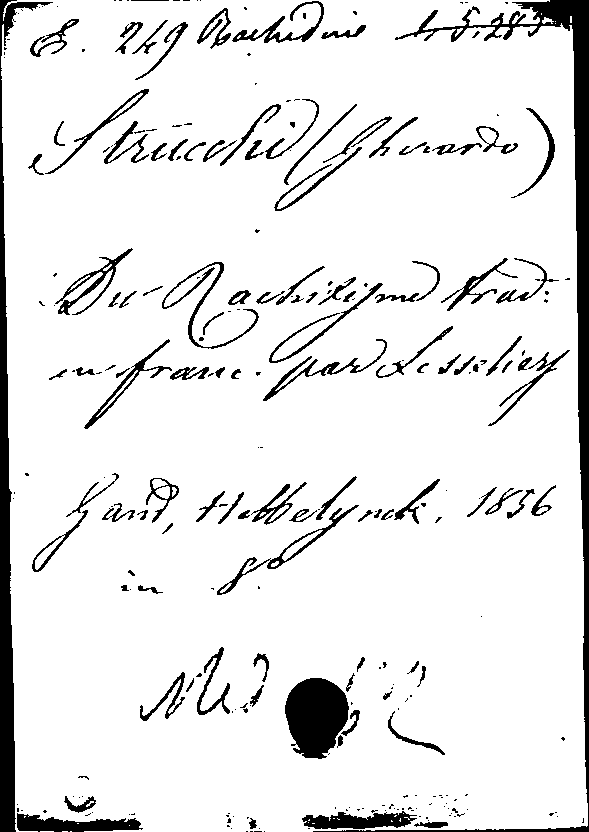 E. 249 Rachidine 1,5.283
Strucchi (Gherardo)
Du Rachitisme trad:
en franc. par Lesseliers
Gand, Hebbelynck, 1856
in 8°
Med